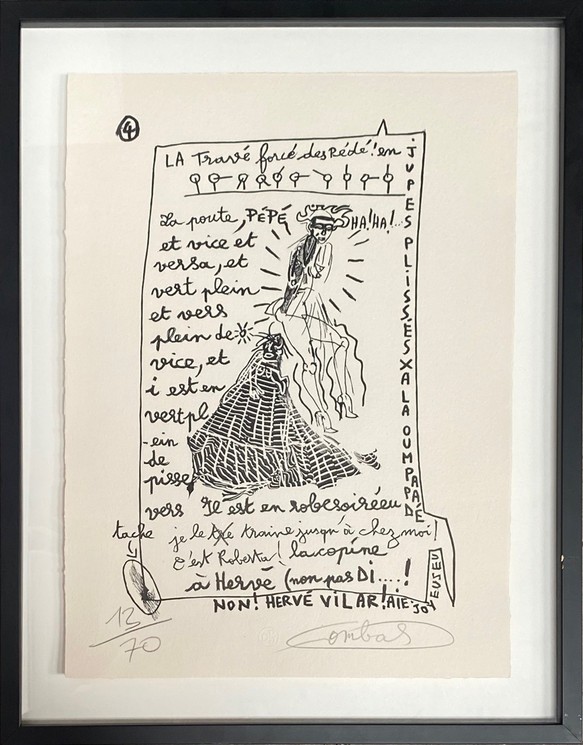 4
LA Travé forcé des Pédé! en
JUPES PLISSÉS X A LA OUMPAPA
PADÉ
La poute, PÉPÉ
HA! HA!..
et vice et
versa, et
vert plein
et vers
plein de
vice, et
i est en
vert pl
-ein
de
pisse
vers Il est en robe soiréeu
tache
je le traine jusqu'à chez moi!
C'est Roberta! la copine
à Hervé (non pas Di....!
NON! HERVÉ VILAR! AIE
JOY
EUSEU
13/70
Combas